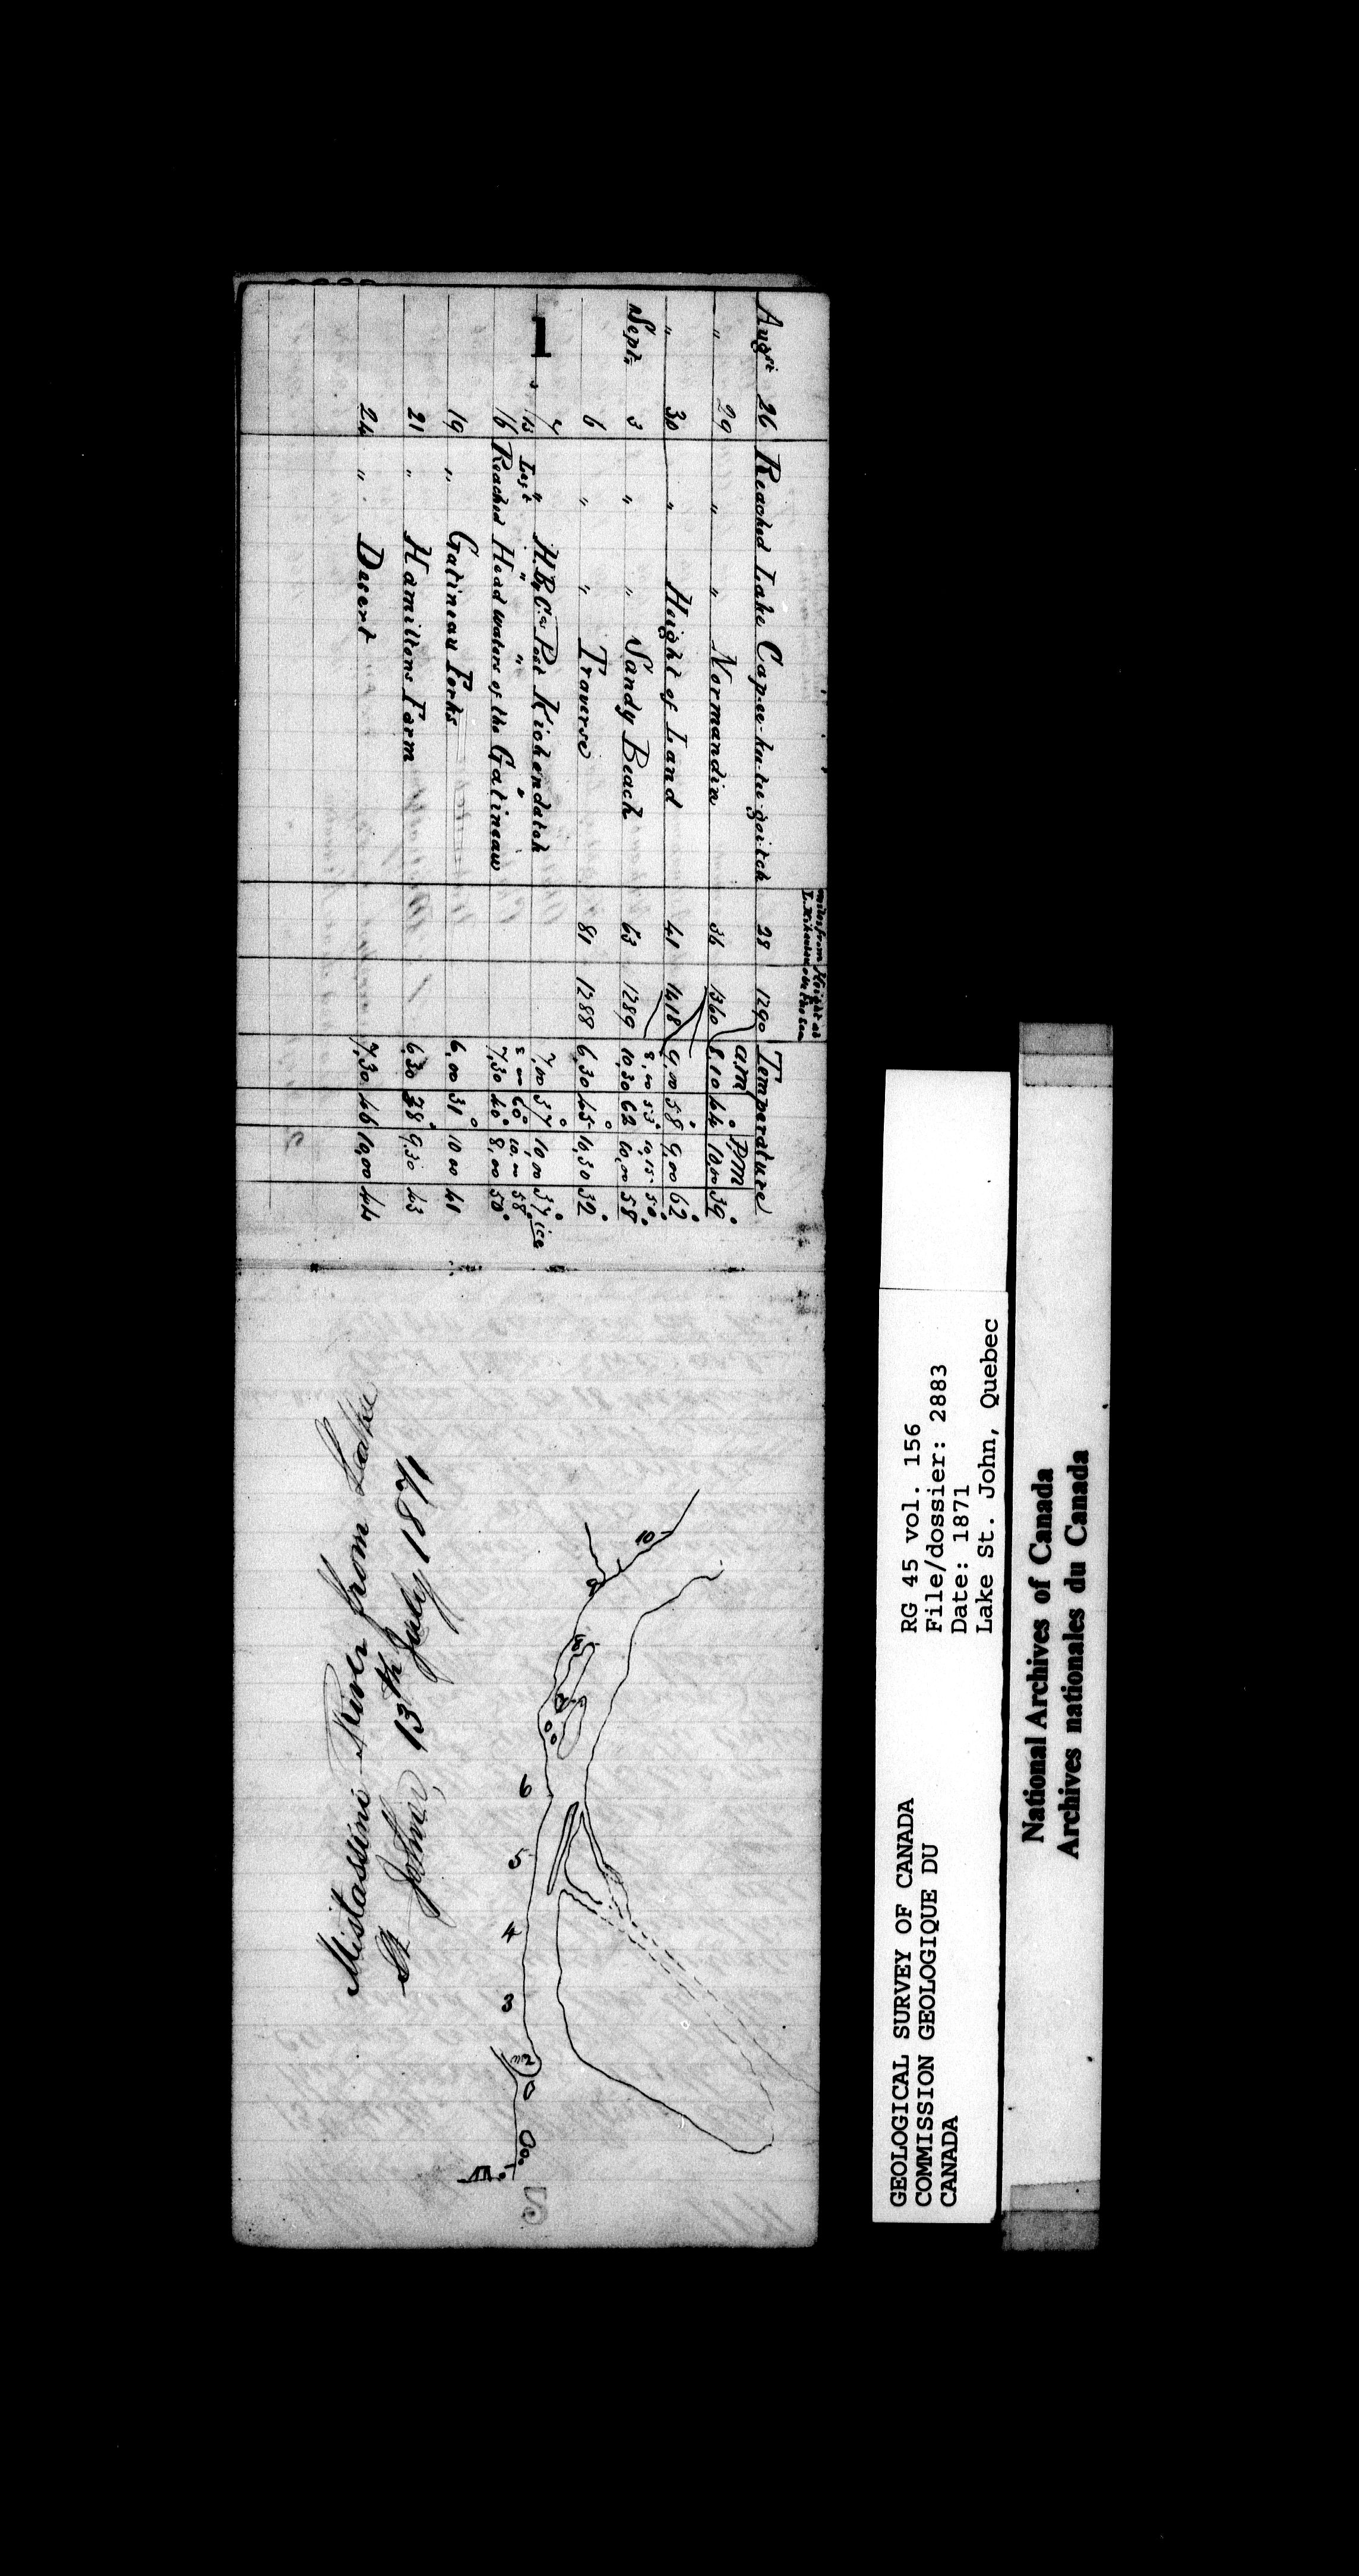 miles from L. Kikendatch
Height above the sea
Temperature
am Pm
Augst 26 Reached Lake Cap-ee-ka-tee-goi-tch 28 1290
" 29 " " Normandin 36 1360 8.10 44° 10.00 39°
" 30 " Height of Land 41 1418 9,00 58 9,00 62°
8,00 53° 10,15 50°
Septr 3 " " Sandy Beach 63 1289 10,30 62 10,00 58°
6 " " Traverse 81 1288 6,30 45° 10,30 32°
7 " H.B.Cos Post Kickendatch 7,00 37° 10 00 37° ice
13 Left " " " 8 00 60° 10.00 58°
16 Reached Head waters of the Gatineau 7,30 40° 8,00 50°
19 " Gatineau Forks 6,00 31° 10 00 41
21 " Hamiltons Farm 6,30 38° 9,30 43
24 " Desert 7,30 46 10,00 44
1
Mistassini River from Lake
St John, 13th July 1871
10
9
8
7
6
5
4
3
2
GEOLOGICAL SURVEY OF CANADA
COMMISSION GEOLOGIQUE DU
CANADA
RG 45 vol. 156
File/dossier: 2883
Date: 1871
Lake St. John, Quebec
National Archives of Canada
Archives nationales du Canada